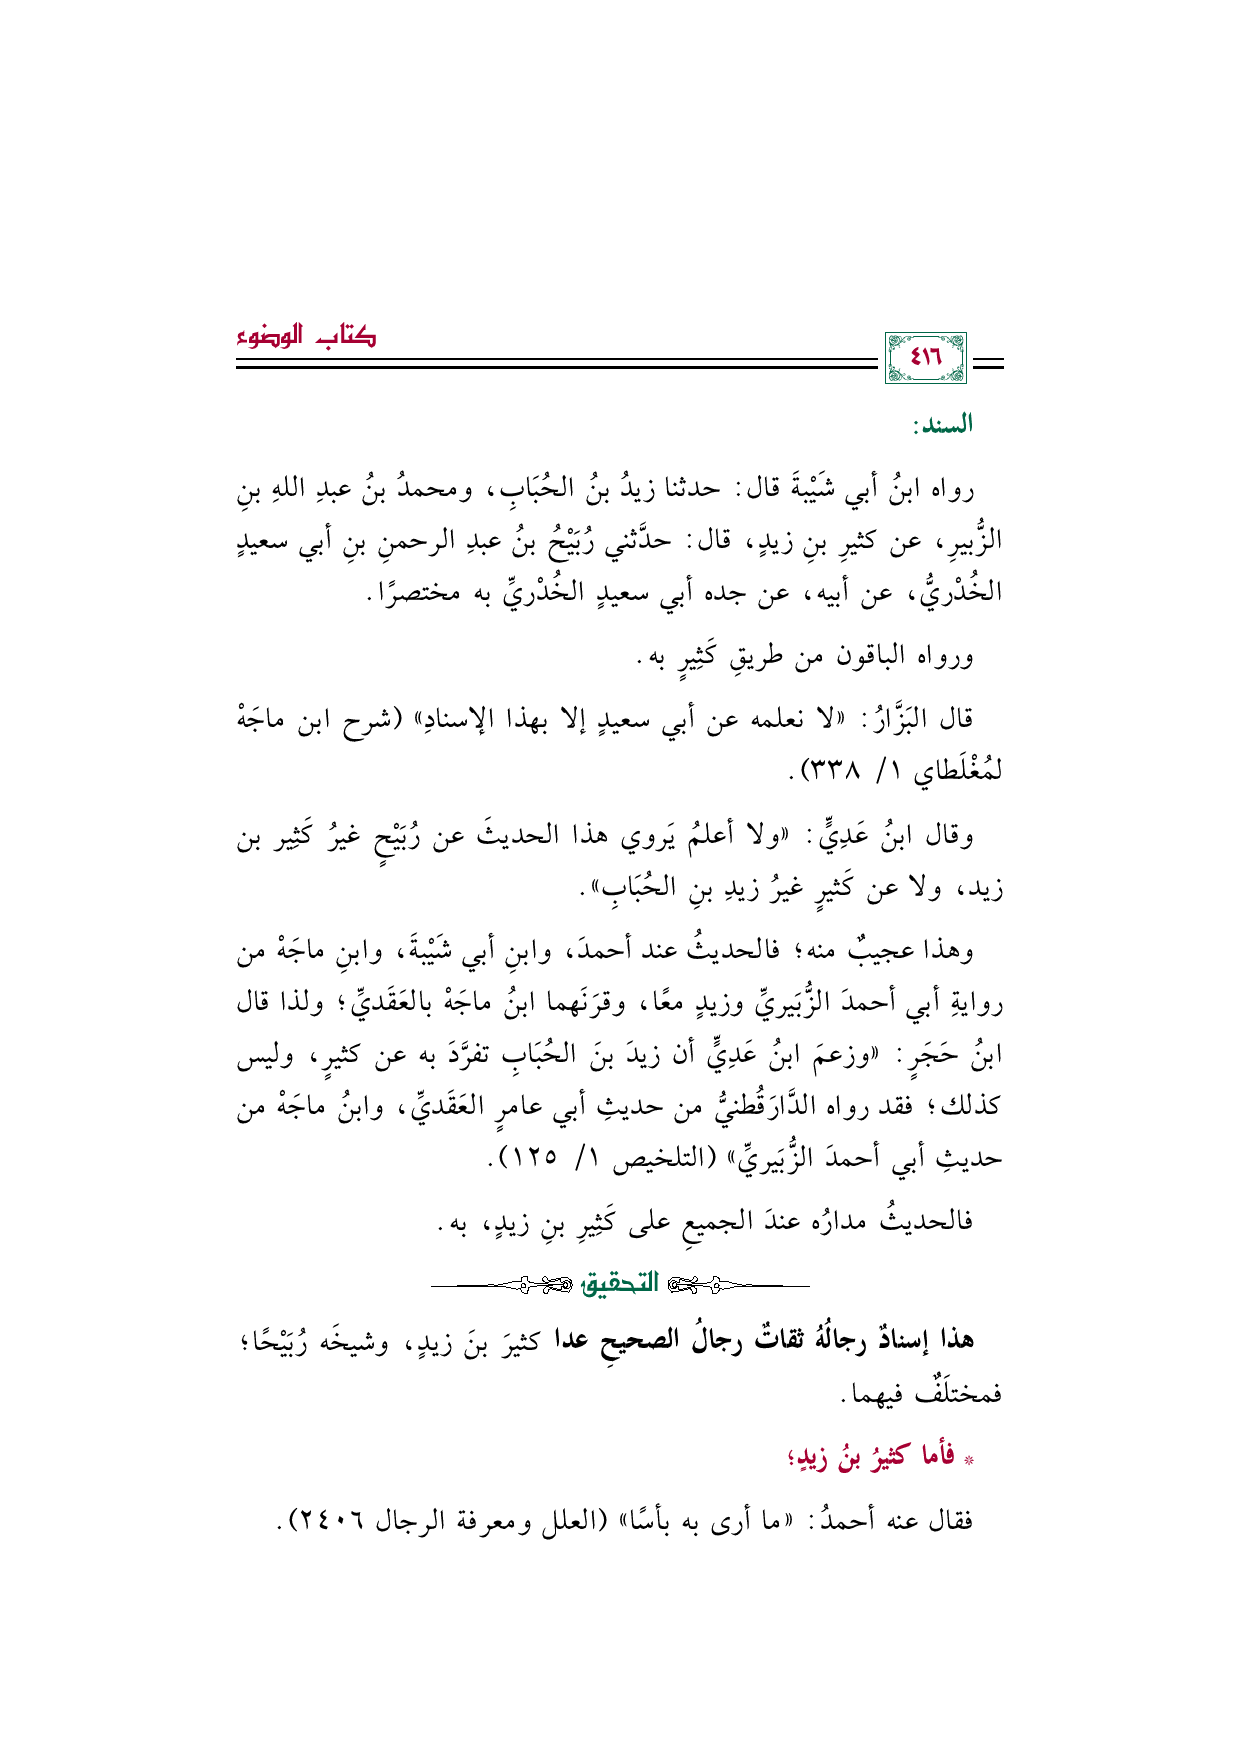 كتاب الوضوء
٤١٦
السند:
رواه ابنُ أبي شَيْبةَ قال: حدثنا زيدُ بنُ الحُبَابِ، ومحمدُ بنُ عبدِ اللهِ بنِ
الزُّبيرِ، عن كثيرِ بنِ زيدٍ، قال: حدَّثني رُبَيْحُ بنُ عبدِ الرحمنِ بنِ أبي سعيدٍ
الخُدْريُّ، عن أبيه، عن جده أبي سعيدٍ الخُدْريِّ به مختصرًا.
ورواه الباقون من طريقِ كَثِيرٍ به.
قال البَزَّارُ: «لا نعلمه عن أبي سعيدٍ إلا بهذا الإسنادِ» (شرح ابن ماجَهْ
لمُغْلَطاي ١/ ٣٣٨).
وقال ابنُ عَدِيٍّ: «ولا أعلمُ يَروي هذا الحديثَ عن رُبَيْحٍ غيرُ كَثِير بن
زيد، ولا عن كَثيرٍ غيرُ زيدِ بنِ الحُبَابِ».
وهذا عجيبٌ منه؛ فالحديثُ عند أحمدَ، وابنِ أبي شَيْبةَ، وابنِ ماجَهْ من
روايةِ أبي أحمدَ الزُّبَيريِّ وزيدٍ معًا، وقرَنَهما ابنُ ماجَهْ بالعَقَديِّ؛ ولذا قال
ابنُ حَجَرٍ: «وزعمَ ابنُ عَدِيٍّ أن زيدَ بنَ الحُبَابِ تفرَّدَ به عن كثيرٍ، وليس
كذلك؛ فقد رواه الدَّارَقُطنيُّ من حديثِ أبي عامرٍ العَقَديِّ، وابنُ ماجَهْ من
حديثِ أبي أحمدَ الزُّبَيريِّ» (التلخيص ١/ ١٢٥).
فالحديثُ مدارُه عندَ الجميعِ على كَثِيرِ بنِ زيدٍ، به.
التحقيق
هذا إسنادٌ رجالُهُ ثقاتٌ رجالُ الصحيحِ عدا كثيرَ بنَ زيدٍ، وشيخَه رُبَيْحًا؛
فمختلَفٌ فيهما.
* فأما كثيرُ بنُ زيدٍ؛
فقال عنه أحمدُ: «ما أرى به بأسًا» (العلل ومعرفة الرجال ٢٤٠٦).